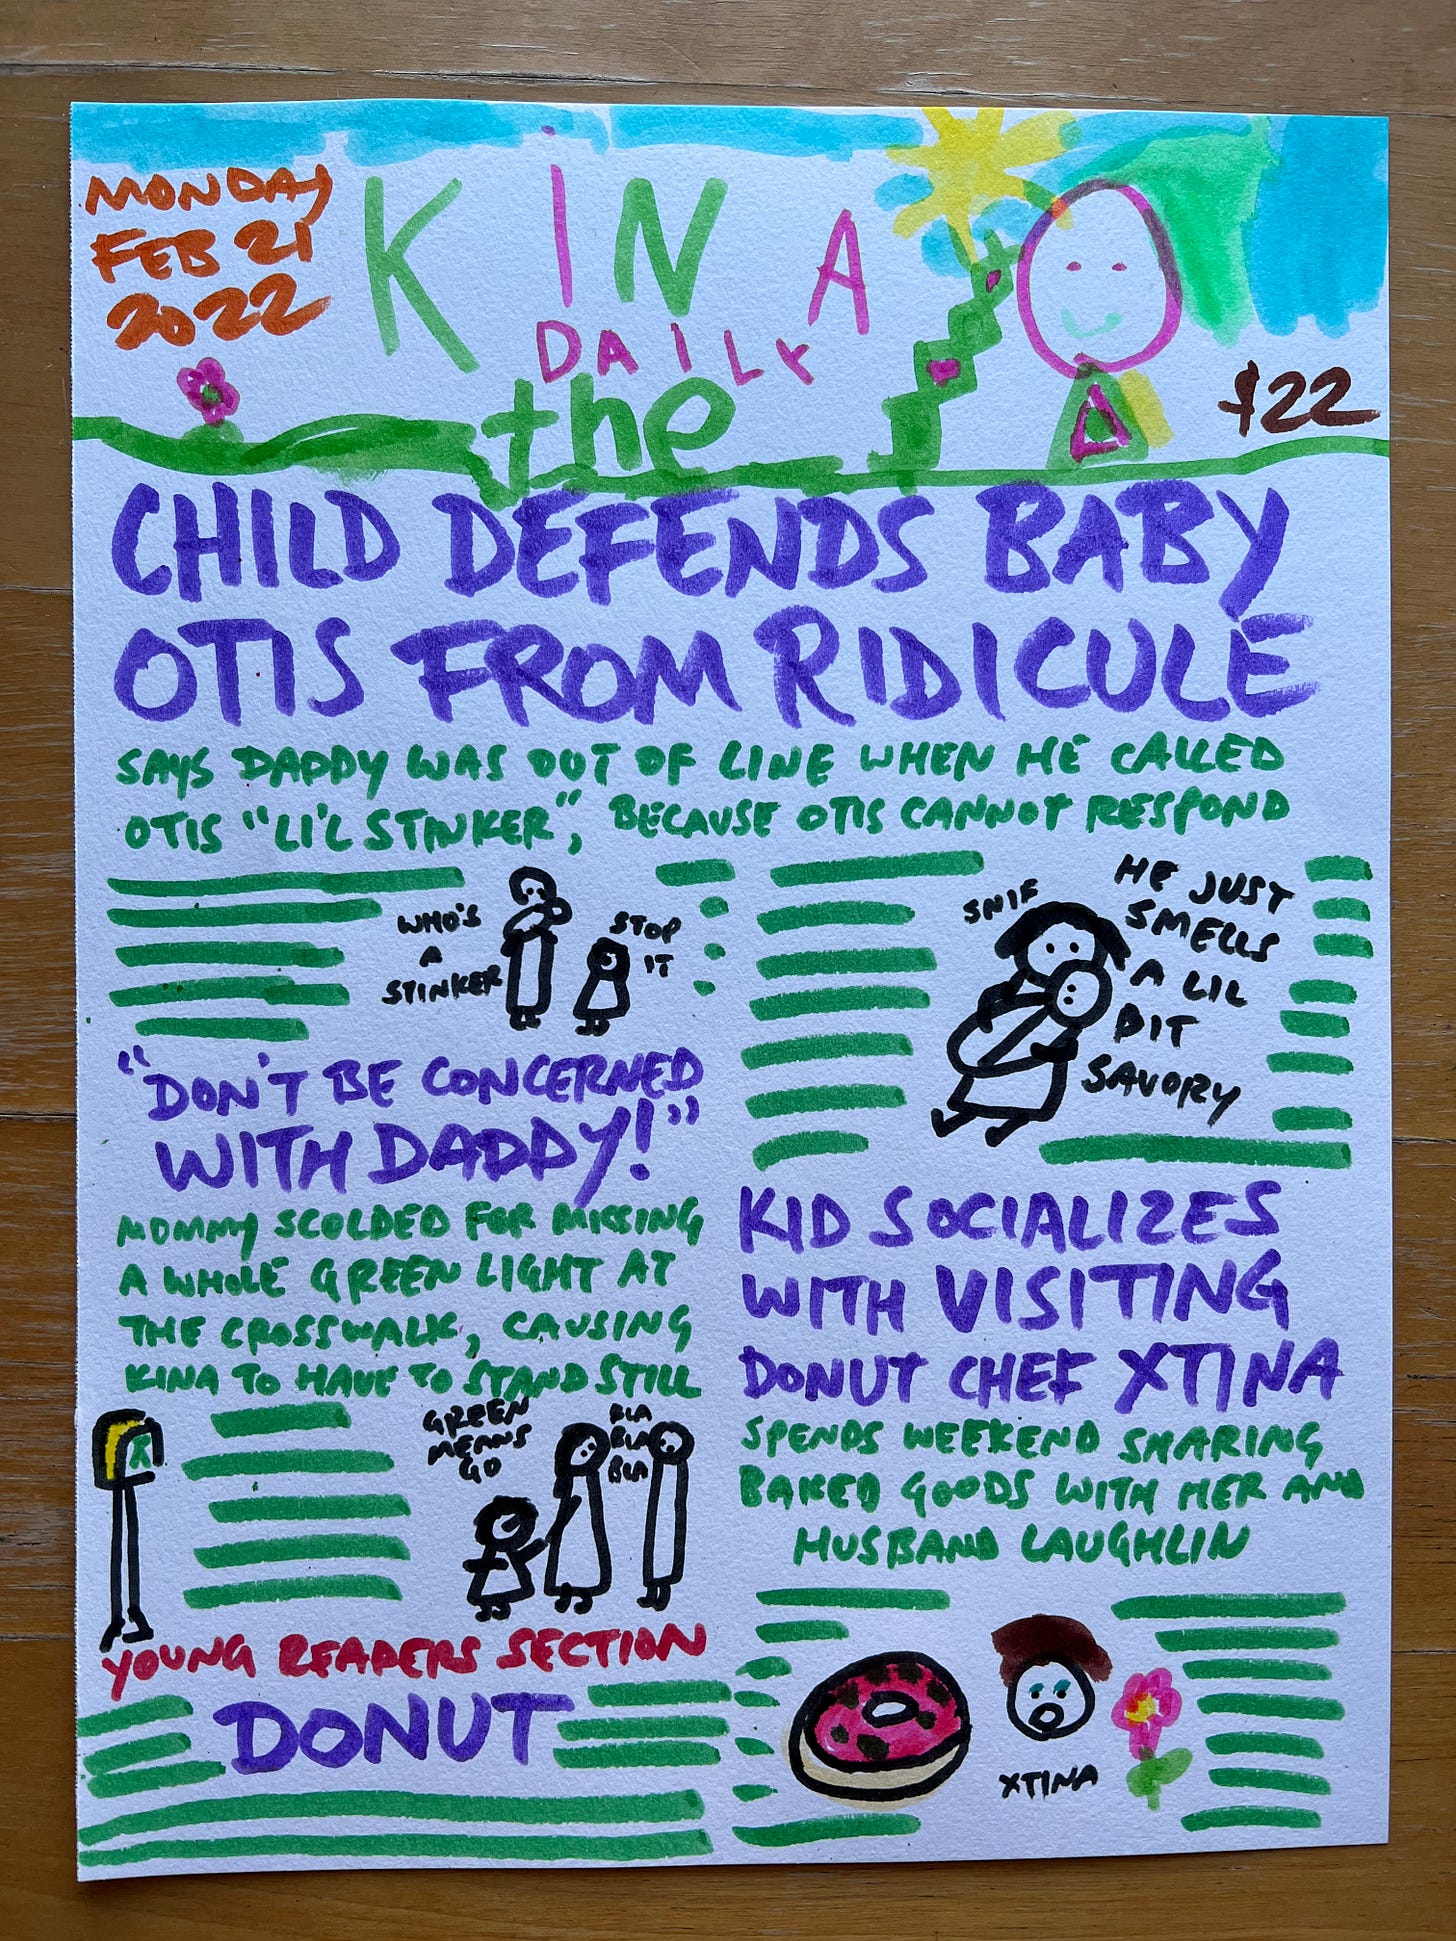 MONDAY
FEB 21
2022
KINA
DAILY
the
$22
CHILD DEFENDS BABY
OTIS FROM RIDICULE
SAYS DADDY WAS OUT OF LINE WHEN HE CALLED
OTIS "LI'L STINKER", BECAUSE OTIS CANNOT RESPOND
WHO'S
A
STINKER
STOP
IT
SNIF
HE JUST
SMELLS
A LIL
BIT
SAVORY
"DON'T BE CONCERNED
WITH DADDY!"
MOMMY SCOLDED FOR MISSING
A WHOLE GREEN LIGHT AT
THE CROSSWALK, CAUSING
KINA TO HAVE TO STAND STILL
GREEN
MEANS
GO
BLA
BLA
BLA
KID SOCIALIZES
WITH VISITING
DONUT CHEF XTINA
SPENDS WEEKEND SHARING
BAKED GOODS WITH HER AND
HUSBAND LAUGHLIN
XTINA
YOUNG READERS SECTION
DONUT